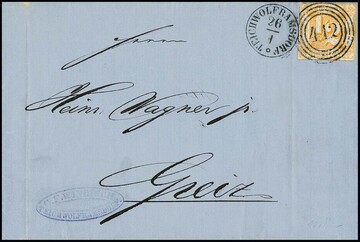 TEICHWOLFRAMSDORF
26
1
412
Herrn
Heinr. Wagner jr.
Greiz
TEICHWOLFRAMSDORF